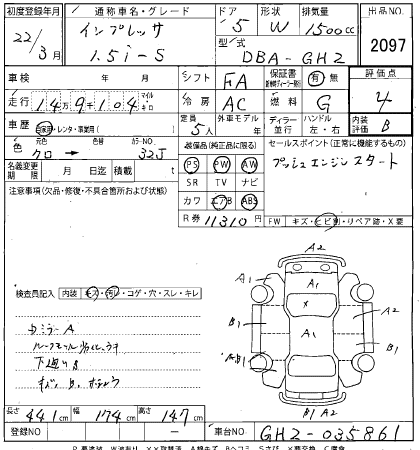 初度登録年月 通称車名・グレード ドア 形状 排気量 出品NO.
22/3月 インプレッサ 1.5i-S 5 W 1500cc
型式 DBA-GH2 2097
車検 年 月 シフト FA 保証書 有 無 評価点
走行 14万9千104 マイル キロ 冷房 AC 燃料 G 4
車歴 自家用・レンタ・事業用( ) 定員 5人 外車モデル ディーラー 並行 ハンドル 左・右 内装評価 B
色 元色 クロ → 色替 カラーNO 32J 装備品(純正品に限る) セールスポイント(正常に機能するもの)
名義変更期限 月 日迄 積載 t PS PW AW プッシュエンジンスタート
注意事項(欠品・修復・不具合箇所および状態) SR TV ナビ
カワ エアB ABS
R券 11310円 FW キズ・ヒビ割・リペア跡・X要
A2
A1 A1
X A2
検査員記入 内装 キズ・汚レ・コゲ・穴・スレ・キレ
B1 A1 B1
カミラーA
ルーフモール劣化、ウキ
AB1
下廻りS
B1 A2
長さ 441cm 幅 174cm 高さ 147cm
登録NO - 車台NO GH2-035861